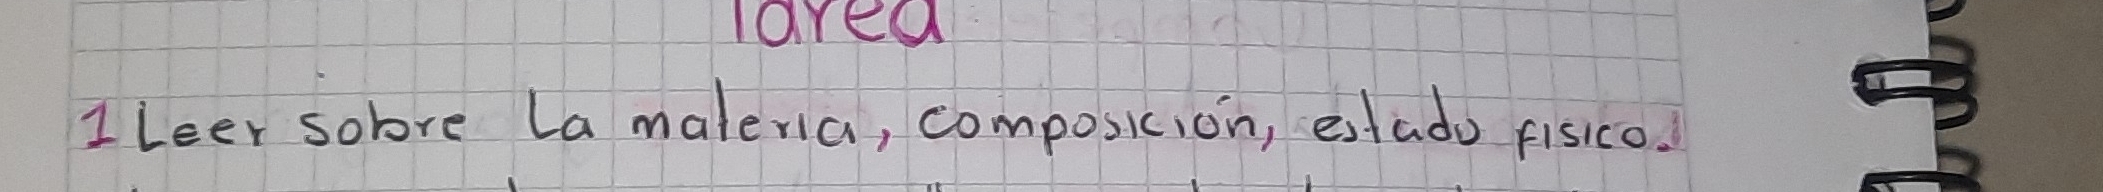 Tarea
1 Leer sobre La materia, composición, estado fisico.